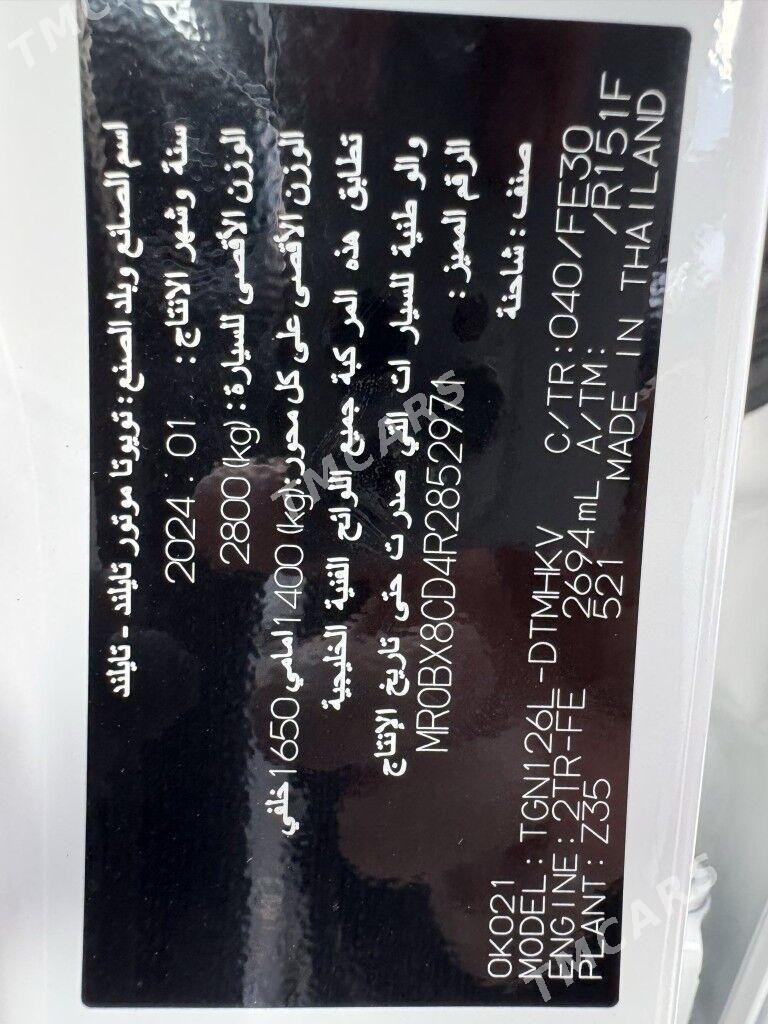 اسم الصانع وبلد الصنع : تويوتا موتور تايلند - تايلند
سنة وشهر الانتاج : 2024 : 01
الوزن الأقصى للسيارة : 2800 (kg)
الوزن الأقصى على كل محور : (kg) 1400 امامي 1650 خلفي
تطابق هذه المركبة جميع اللوائح الفنية الخليجية
والوطنية للسيارات التي صدرت حتى تاريخ الإنتاج
الرقم المميز : MR0BX8CD4R2852971
صنف : شاحنة
0K021
MODEL : TGN126L-DTMHKV C/TR: 040/FE30
ENGINE: 2TR-FE 2694mL A/TM: /R151F
PLANT: Z35 521 MADE IN THAILAND
TMCARS
TMCARS
TMCARS